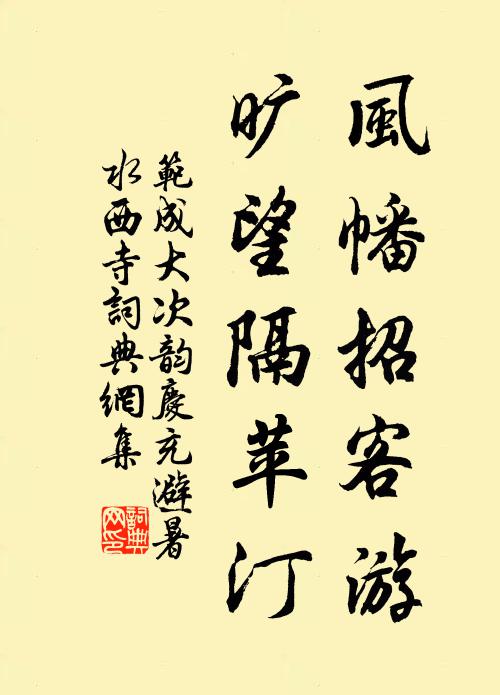 風幡招客游
旷望隔苹汀
範成大次韵慶充避暑
水西寺詞典網集
詞典
网印